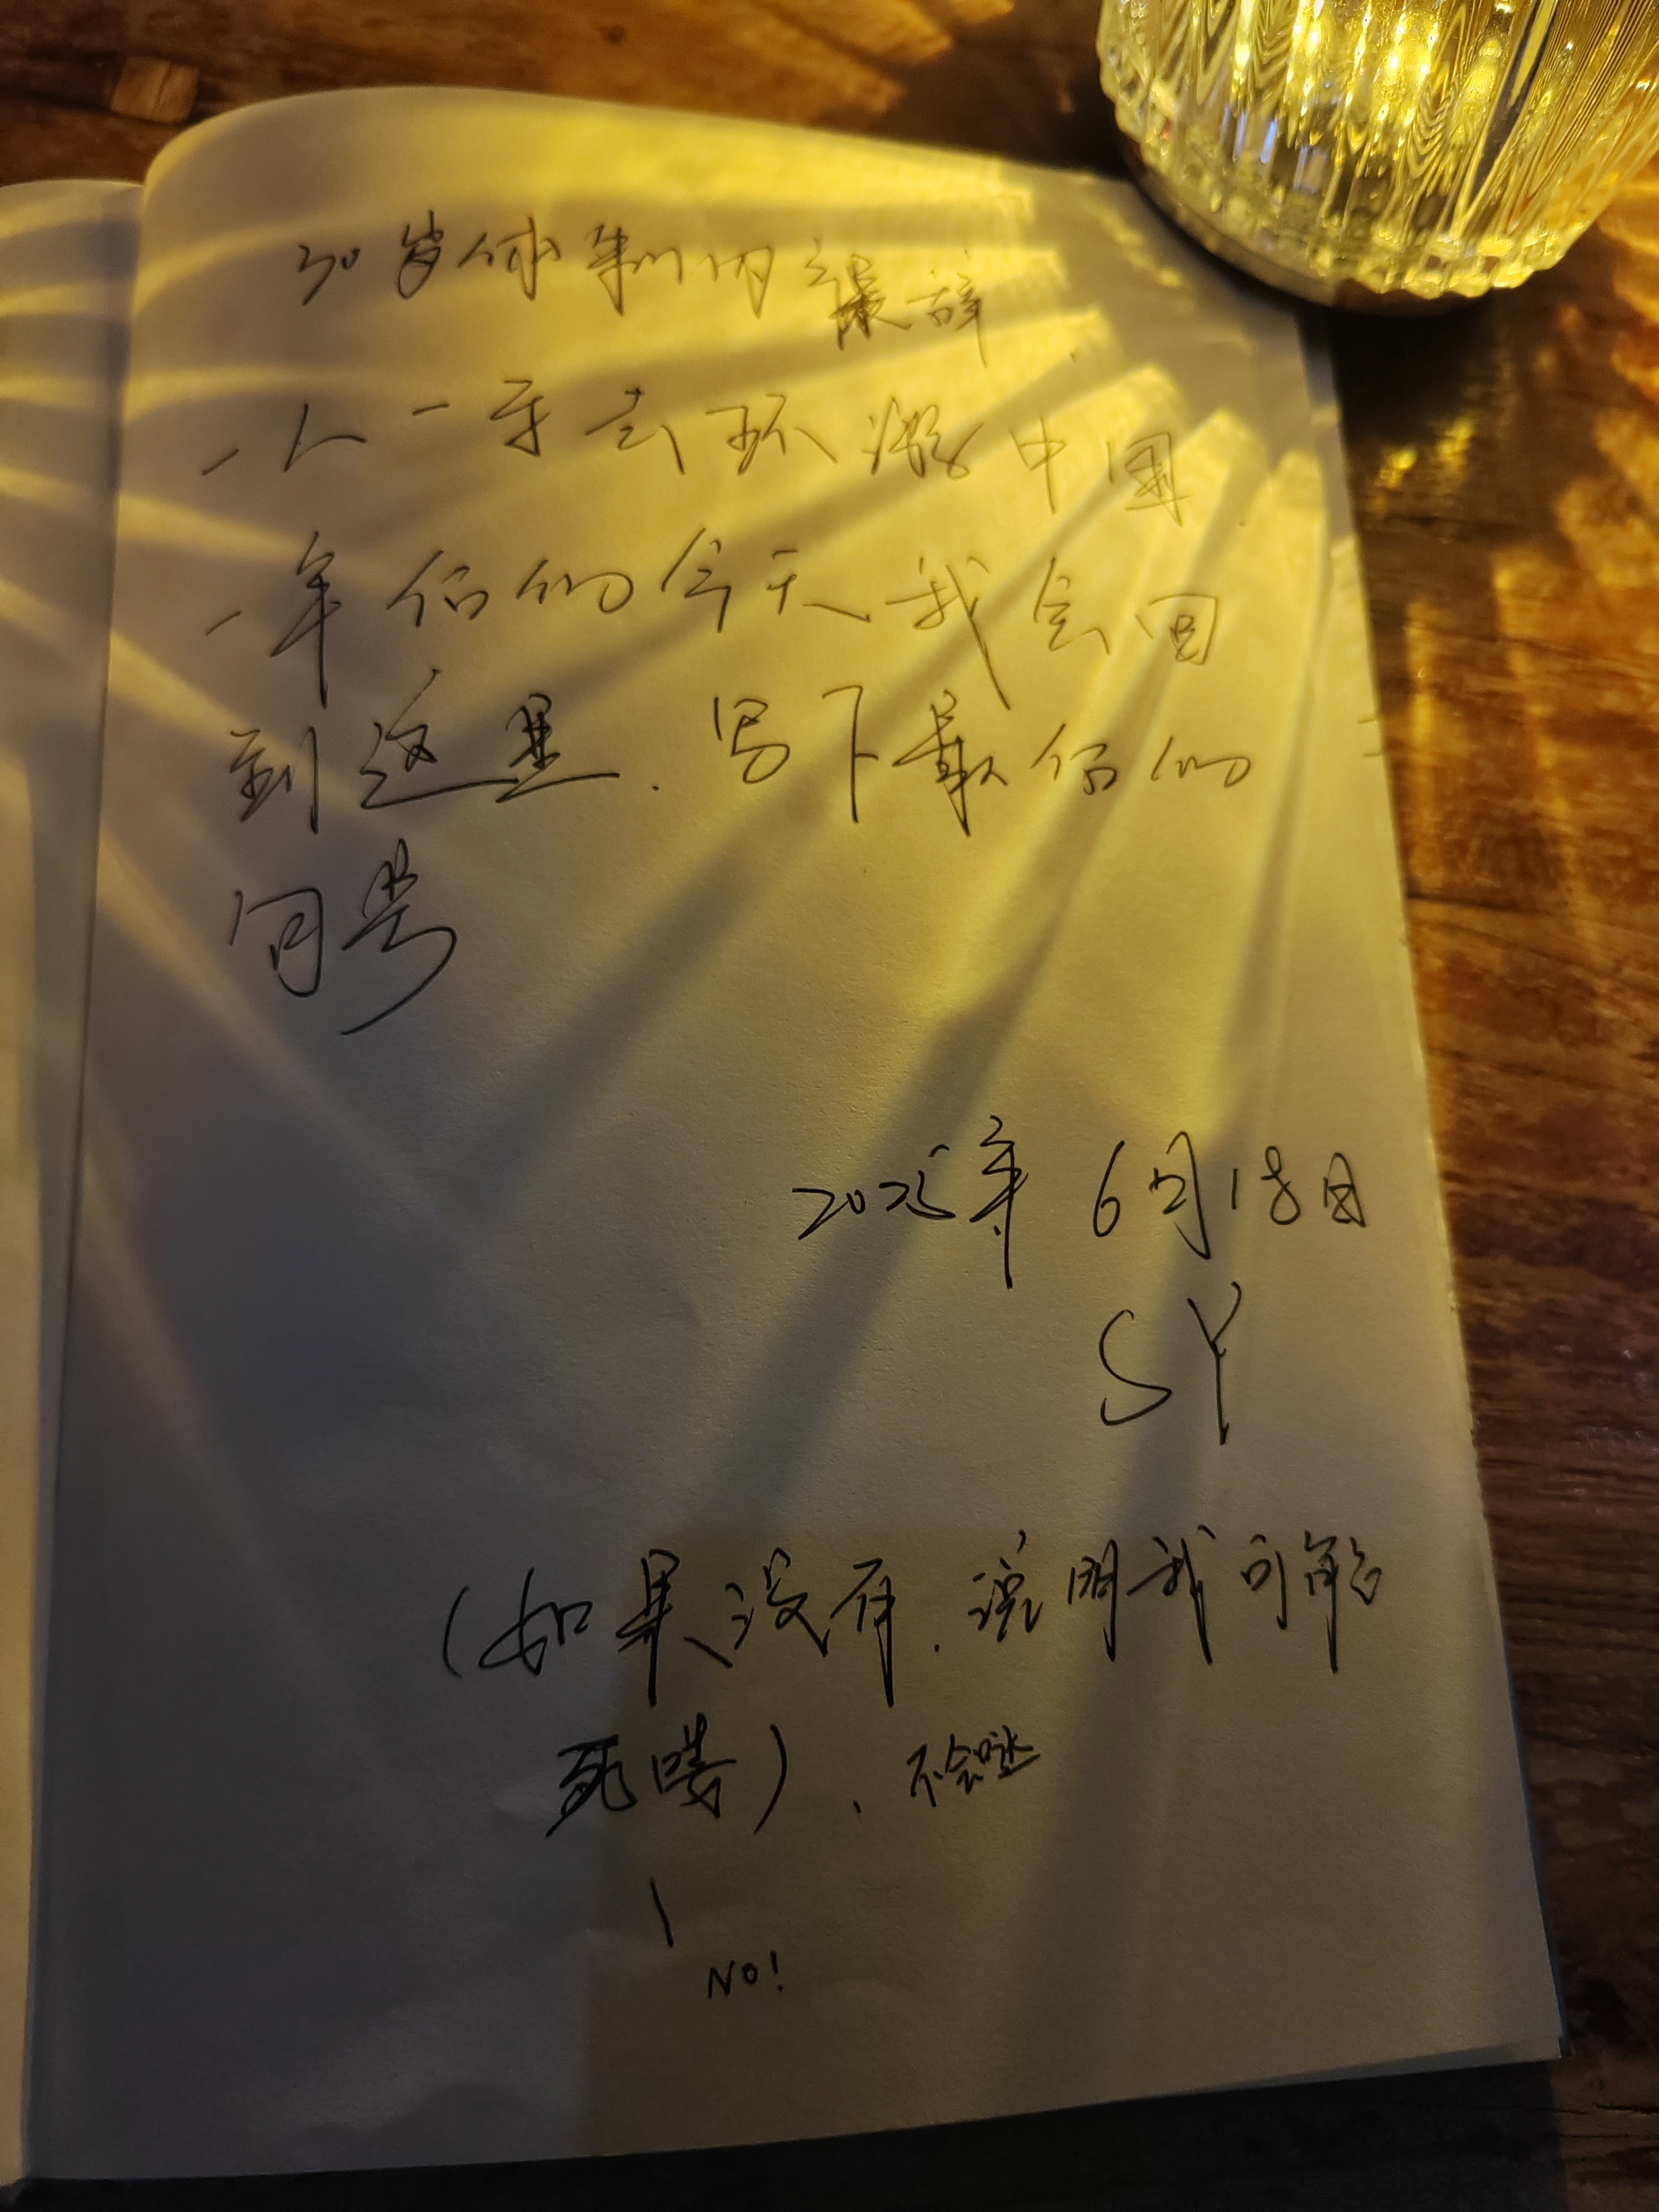 30岁体制内裸辞.
一人一车去环游中国
一年后的今天我会回
到这里.写下最后的
问号
2025年 6月18日
SY
(如果没有.说明我可能
死喽).不会哒
NO!